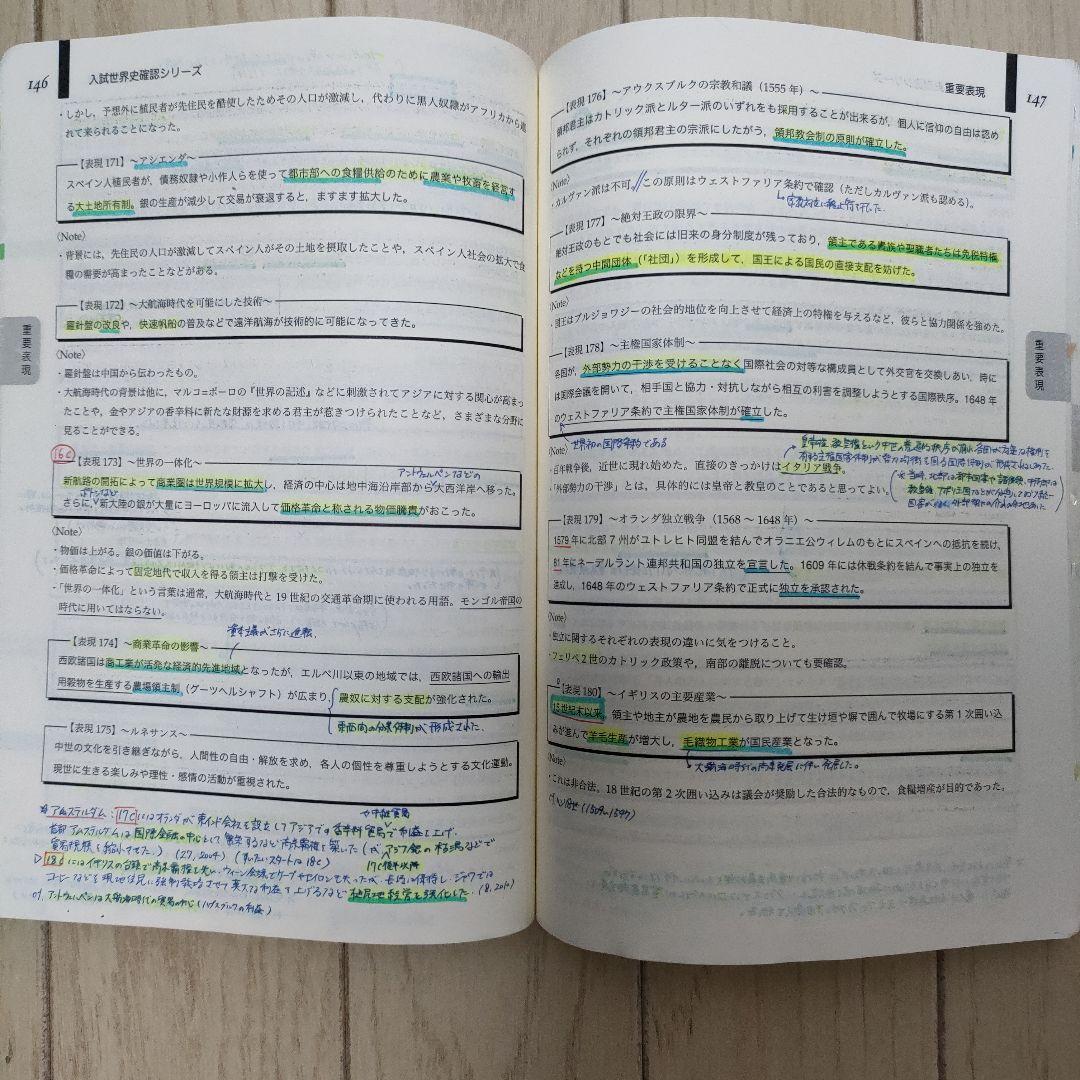 146
入試世界史確認シリーズ
・しかし，予想外に植民者が先住民を酷使したためその人口が激減し，代わりに黒人奴隷がアフリカから連
れて来られることになった。
【表現 171】〜アシエンダ〜
スペイン人植民者が，債務奴隷や小作人らを使って都市部への食糧供給のために農業や牧畜を経営す
る大土地所有制。銀の生産が減少して交易が衰退すると，ますます拡大した。
〈Note〉
・背景には，先住民の人口が激減してスペイン人がその土地を摂取したことや，スペイン人社会の拡大で食
糧の需要が高まったことなどがある。
【表現 172】〜大航海時代を可能にした技術〜
羅針盤の改良や，快速帆船の普及などで遠洋航海が技術的に可能になってきた。
〈Note〉
・羅針盤は中国から伝わったもの。
・大航海時代の背景は他に，マルコ＝ポーロの『世界の記述』などに刺激されてアジアに対する関心が高まっ
たことや，金やアジアの香辛料に新たな財源を求める君主が惹きつけられたことなど，さまざまな分野に
見ることができる。
重要表現
16C
【表現 173】〜世界の一体化〜
アントウェルペンなどの
新航路の開拓によって商業圏は世界規模に拡大し，経済の中心は地中海沿岸部から大西洋岸へ移った。
さらに，新大陸の銀が大量にヨーロッパに流入して価格革命と称される物価騰貴がおこった。
〈Note〉
・物価は上がる。銀の価値は下がる。
・価格革命によって固定地代で収入を得る領主は打撃を受けた。
・「世界の一体化」という言葉は通常，大航海時代と 19 世紀の交通革命期に使われる用語。モンゴル帝国の
時代に用いてはならない。
【表現 174】〜商業革命の影響〜
西欧諸国は商工業が活発な経済的先進地域となったが，エルベ川以東の地域では，西欧諸国への輸出
用穀物を生産する農場領主制（グーツヘルシャフト）が広まり，農奴に対する支配が強化された。
東西間の分業体制が形成された
【表現 175】〜ルネサンス〜
中世の文化を引き継ぎながら，人間性の自由・解放を求め，各人の個性を尊重しようとする文化運動。
現世に生きる楽しみや理性・感情の活動が重視された。
アムステルダム：17Cにはオランダが東インド会社を設立してアジアでの香辛料貿易で利益を上げ，
147
重要表現
【表現 176】〜アウクスブルクの宗教和議（1555 年）〜
領邦君主はカトリック派とルター派のいずれをも採用することが出来るが，個人に信仰の自由は認め
られず，それぞれの領邦君主の宗派にしたがう，領邦教会制の原則が確立した。
〈Note〉
・カルヴァン派は不可。この原則はウェストファリア条約で確認（ただしカルヴァン派も認める）。
【表現 177】〜絶対王政の限界〜
絶対王政のもとでも社会には旧来の身分制度が残っており，領主である貴族や聖職者たちは免税特権
などを持つ中間団体（「社団」）を形成して，国王による国民の直接支配を妨げた。
〈Note〉
・国王はブルジョワジーの社会的地位を向上させて経済上の特権を与えるなど，彼らと協力関係を強めた。
【表現 178】〜主権国家体制〜
各国が，外部勢力の干渉を受けることなく国際社会の対等な構成員として外交官を交換しあい，時に
は国際会議を開いて，相手国と協力・対抗しながら相互の利害を調整しようとする国際秩序。1648 年
のウェストファリア条約で主権国家体制が確立した。
〈Note〉
世界初の国際条約である
・百年戦争後，近世に現れ始めた。直接のきっかけはイタリア戦争。
・「外部勢力の干渉」とは，具体的には皇帝と教皇のことであると思ってよい。
重要表現
【表現 179】〜オランダ独立戦争（1568 〜 1648 年）〜
1579 年に北部 7 州がユトレヒト同盟を結んでオラニエ公ウィレムのもとにスペインへの抵抗を続け，
81 年にネーデルラント連邦共和国の独立を宣言した。1609 年には休戦条約を結んで事実上の独立を
達成し，1648 年のウェストファリア条約で正式に独立を承認された。
〈Note〉
・独立に関するそれぞれの表現の違いに気をつけること。
・フェリペ 2 世のカトリック政策や，南部の離脱についても要確認。
【表現 180】〜イギリスの主要産業〜
15 世紀末以来，領主や地主が農地を農民から取り上げて生け垣や塀で囲んで牧場にする第 1 次囲い込
みが進んで羊毛生産が増大し，毛織物工業が国民産業となった。
〈Note〉
・これは非合法，18 世紀の第 2 次囲い込みは議会が奨励した合法的なもので，食糧増産が目的であった。